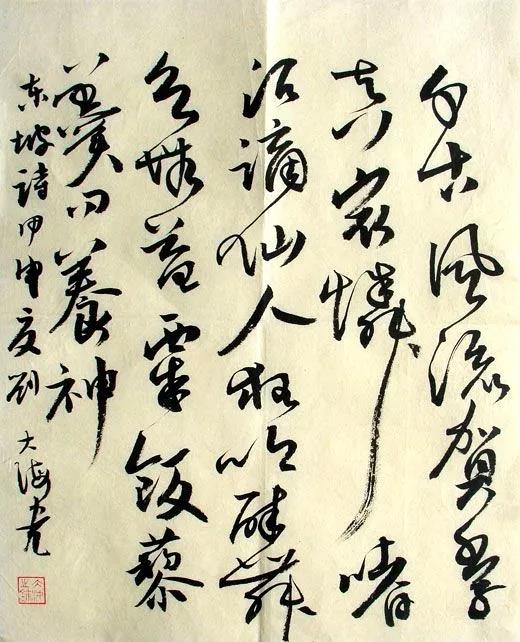 自古風流賀季
真最憐嗜
酒謫仙人狂吟醉舞
知無益粟飯藜
羹問養神
东坡詩甲申夏刘大海